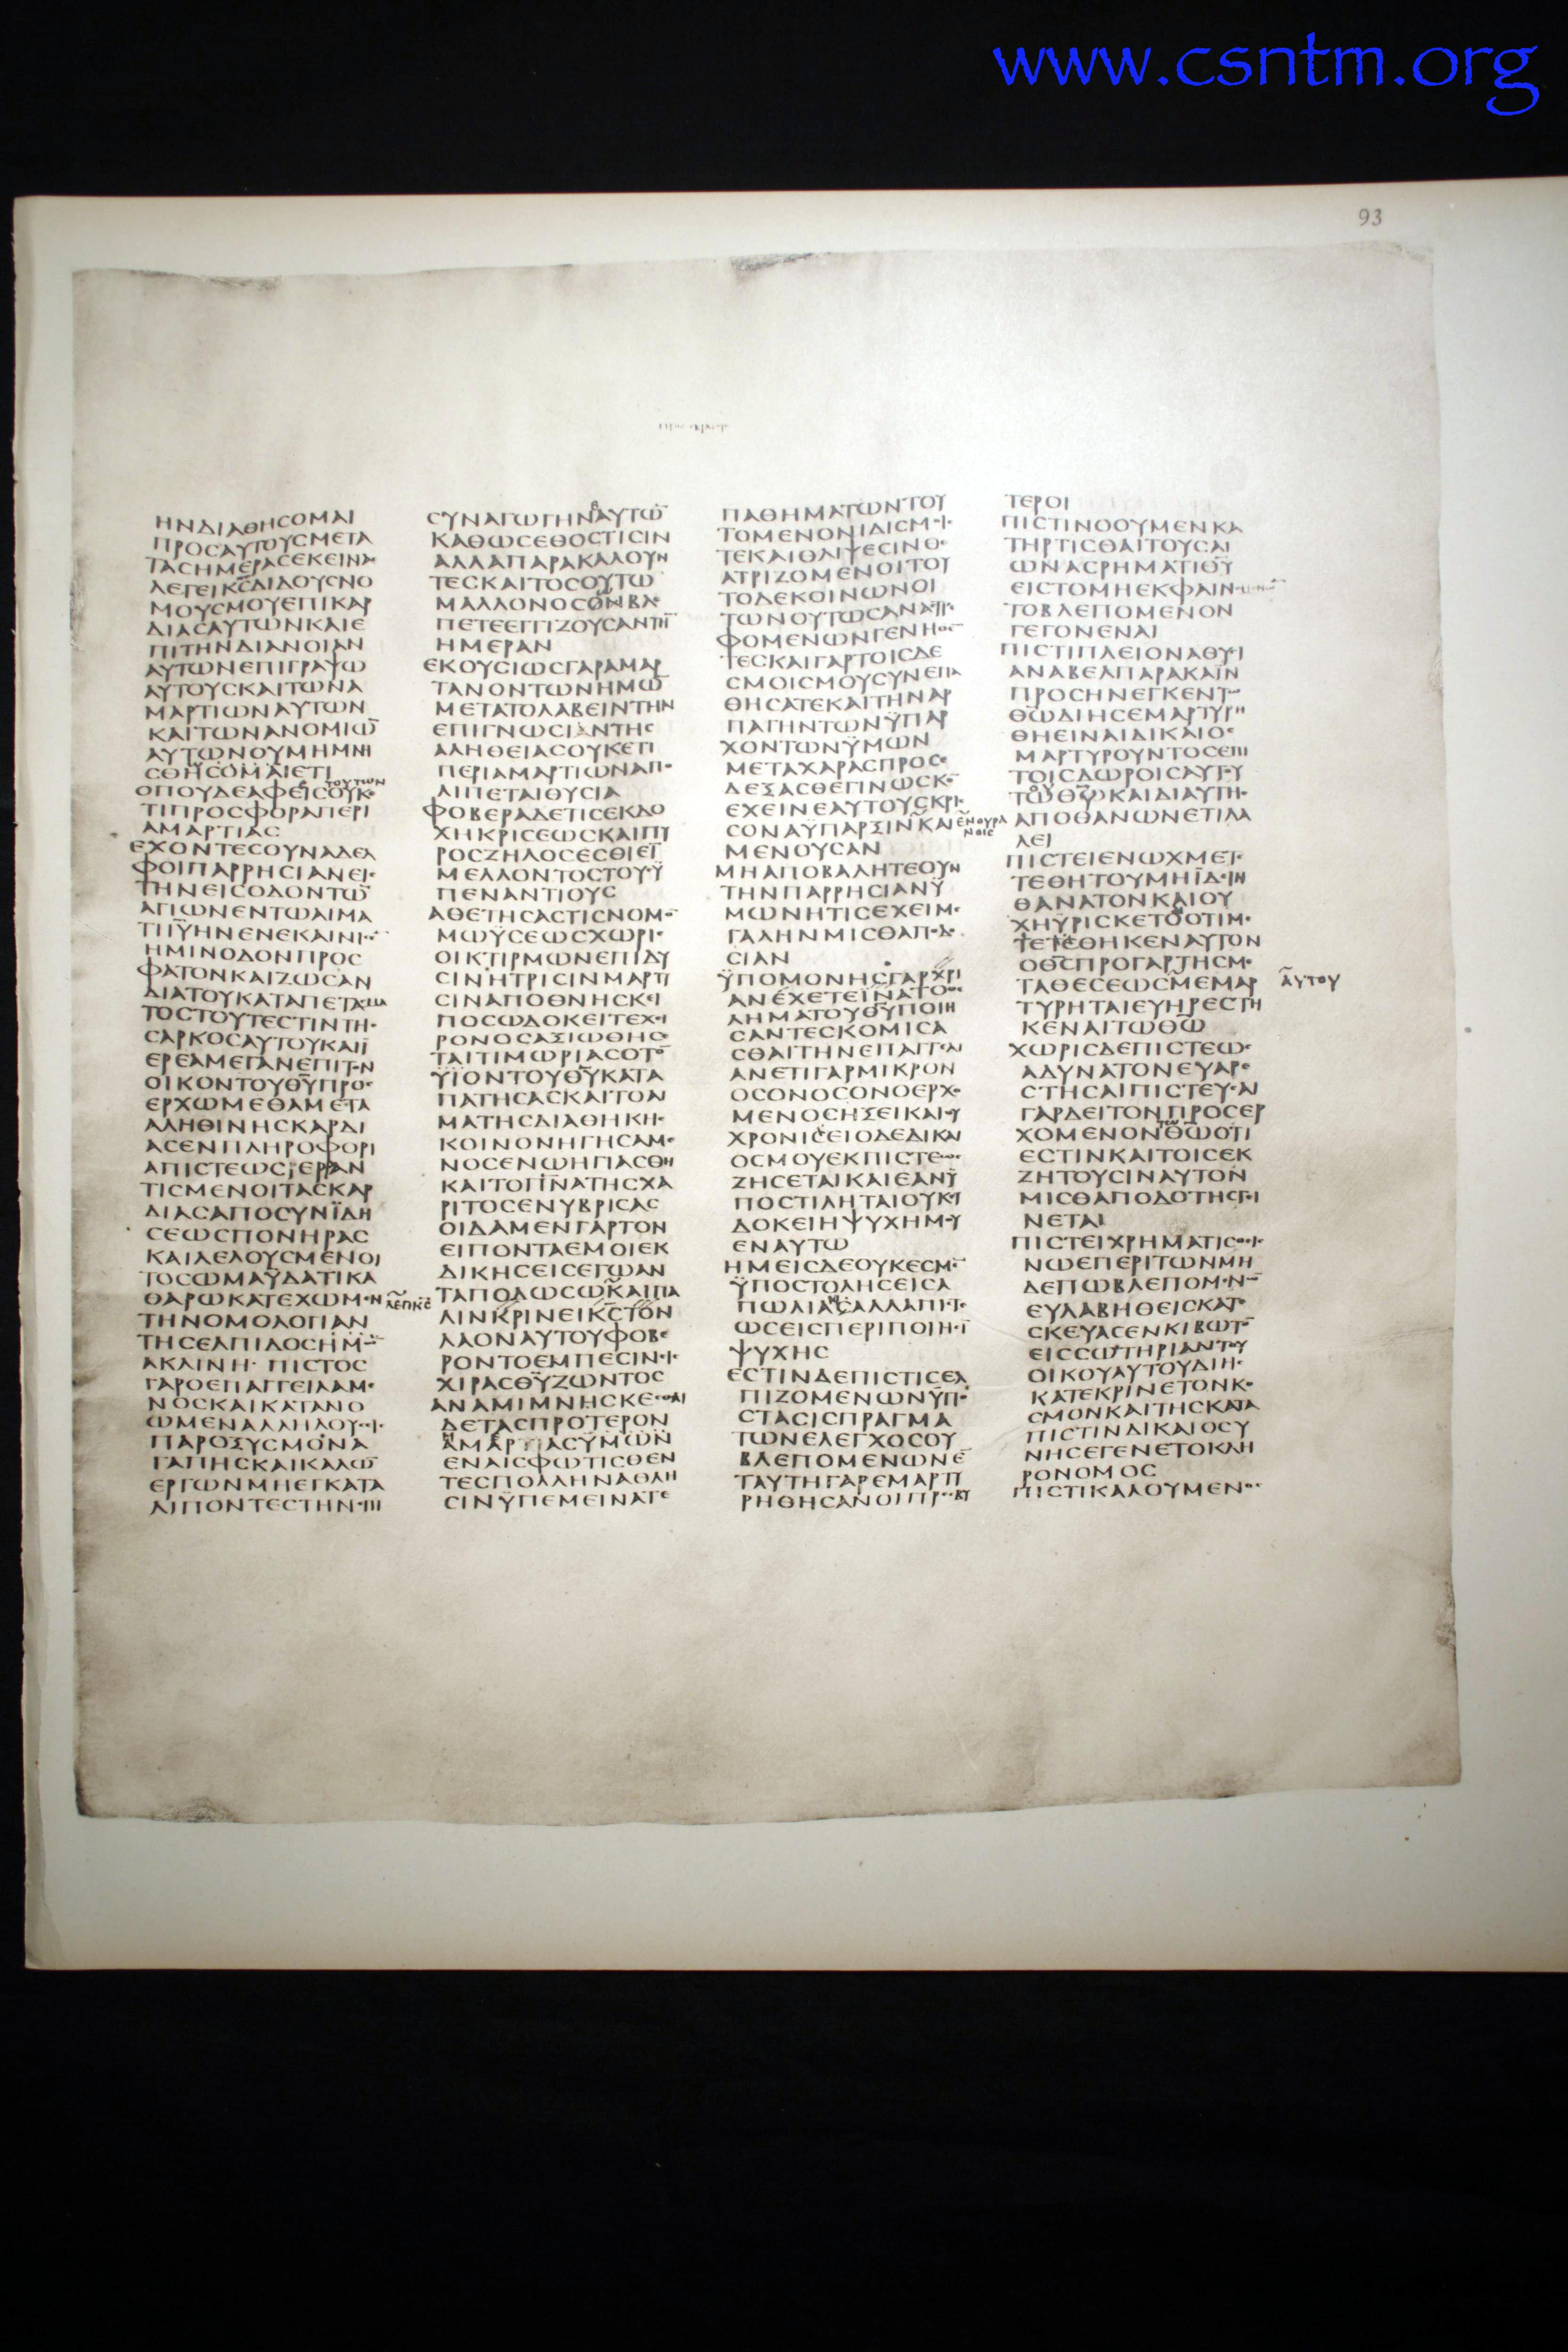 www.csntm.org
93
ΗΝΔΙΑΘΗCΟΜΑΙ
ΠΡΟCΑΥΤΟΥCΜΕΤΑ
ΤΑCΗΜΕΡΑCΕΚΕΙΝΑC
ΛΕΓΕΙΚCΔΙΔΟΥCΝΟ
ΜΟΥCΜΟΥΕΠΙΚΑΡ
ΔΙΑCΑΥΤΩΝΚΑΙΕ
ΠΙΤΗΝΔΙΑΝΟΙΑΝ
ΑΥΤΩΝΕΠΙΓΡΑΨΩ
ΑΥΤΟΥCΚΑΙΤΩΝΑ
ΜΑΡΤΙΩΝΑΥΤΩΝ
ΚΑΙΤΩΝΑΝΟΜΙΩ̅
ΑΥΤΩΝΟΥΜΗΜΝΗ
CΘΗCΟΜΑΙΕΤΙ
ΟΠΟΥΔΕΑΦΕΙCΤΟΥΤΩΝΟΥΚΕ
ΤΙΠΡΟCΦΟΡΑΠΕΡΙ
ΑΜΑΡΤΙΑC
ΕΧΟΝΤΕCΟΥΝΑΔΕΛ
ΦΟΙΠΑΡΡΗCΙΑΝΕΙC
ΤΗΝΕΙCΟΔΟΝΤΩ̅
ΑΓΙΩΝΕΝΤΩΑΙΜΑ
ΤΙΙΥΗΝΕΝΕΚΑΙΝΙCΕ̅
ΗΜΙΝΟΔΟΝΠΡΟC
ΦΑΤΟΝΚΑΙΖΩCΑΝ
ΔΙΑΤΟΥΚΑΤΑΠΕΤΑCΜΑ
ΤΟCΤΟΥΤΕCΤΙΝΤΗC
CΑΡΚΟCΑΥΤΟΥΚΑΙΪ
ΕΡΕΑΜΕΓΑΝΕΠΙΤΟΝ
ΟΙΚΟΝΤΟΥΘΥΠΡΟC
ΕΡΧΩΜΕΘΑΜΕΤΑ
ΑΛΗΘΙΝΗCΚΑΡΔΙ
ΑCΕΝΠΛΗΡΟΦΟΡΙ
ΑΠΙCΤΕΩCΡΕΡΑΝ
ΤΙCΜΕΝΟΙΤΑCΚΑΡ
ΔΙΑCΑΠΟCΥΝΪΔΗ
CΕΩCΠΟΝΗΡΑC
ΚΑΙΛΕΛΟΥCΜΕΝΟΙ
ΤΟCΩΜΑΫΔΑΤΙΚΑ
ΘΑΡΩΚΑΤΕΧΩΜΕΝ
ΤΗΝΟΜΟΛΟΓΙΑΝ
ΤΗCΕΛΠΙΔΟCΗΜΩ̅
ΑΚΛΙΝΗ· ΠΙCΤΟC
ΓΑΡΟΕΠΑΓΓΕΙΛΑΜΕ
ΝΟCΚΑΙΚΑΤΑΝΟ
ΩΜΕΝΑΛΛΗΛΟΥCΕΙC
ΠΑΡΟΞΥCΜΟΝΑ
ΓΑΠΗCΚΑΙΚΑΛΩ̅
ΕΡΓΩΝΜΗΕΓΚΑΤΑ
ΛΙΠΟΝΤΕCΤΗΝΕΠΙ
CΥΝΑΓΩΓΗΝΕΑΥΤΩ̅
ΚΑΘΩCΕΘΟCΤΙCΙΝ
ΑΛΛΑΠΑΡΑΚΑΛΟΥΝ
ΤΕCΚΑΙΤΟCΟΥΤΩ
ΜΑΛΛΟΝΟCΟΝΒΛΕ
ΠΕΤΕΕΓΓΙΖΟΥCΑΝΤΗ̅
ΗΜΕΡΑΝ
ΕΚΟΥCΙΩCΓΑΡΑΜΑΡ
ΤΑΝΟΝΤΩΝΗΜΩ̅
ΜΕΤΑΤΟΛΑΒΕΙΝΤΗΝ
ΕΠΙΓΝΩCΙΑΝΤΗC
ΑΛΗΘΕΙΑCΟΥΚΕΤΙ
ΠΕΡΙΑΜΑΡΤΙΩΝΑΠΟ
ΛΙΠΕΤΑΙΘΥCΙΑ
ΦΟΒΕΡΑΔΕΤΙCΕΚΔΟ
ΧΗΚΡΙCΕΩCΚΑΙΠΥ
ΡΟCΖΗΛΟCΕCΘΙΕΙ̅
ΜΕΛΛΟΝΤΟCΤΟΥCΫ
ΠΕΝΑΝΤΙΟΥC
ΑΘΕΤΗCΑCΤΙCΝΟΜΟ̅
ΜΩΫCΕΩCΧΩΡΙC
ΟΙΚΤΙΡΜΩΝΕΠΙΔΥ
CΙΝΗΤΡΙCΙΝΜΑΡΤΥ
CΙΝΑΠΟΘΝΗCΚΕΙ
ΠΟCΩΔΟΚΕΙΤΕΧΕΙ
ΡΟΝΟCΑΞΙΩΘΗCΕ
ΤΑΙΤΙΜΩΡΙΑCΟΤΟ̅
ΫΪΟΝΤΟΥΘΥΚΑΤΑ
ΠΑΤΗCΑCΚΑΙΤΟΑΙ
ΜΑΤΗCΔΙΑΘΗΚΗC
ΚΟΙΝΟΝΗΓΗCΑΜΕ
ΝΟCΕΝΩΗΓΙΑCΘΗ
ΚΑΙΤΟΠΝΑΤΗCΧΑ
ΡΙΤΟCΕΝΥΒΡΙCΑC
ΟΙΔΑΜΕΝΓΑΡΤΟΝ
ΕΙΠΟΝΤΑΕΜΟΙΕΚ
ΔΙΚΗCΕΙCΕΓΩΑΝ
ΛΕΓΙΚC ΤΑΠΟΔΩCΩΚΑΙΠΑ
ΛΙΝΚΡΙΝΕΙΚCΤΟΝ
ΛΑΟΝΑΥΤΟΥΦΟΒΕ
ΡΟΝΤΟΕΜΠΕCΙΝΕΙC
ΧΙΡΑCΘΥΖΩΝΤΟC
ΑΝΑΜΙΜΝΗCΚΕCΘΑΙ
ΔΕΤΑCΠΡΟΤΕΡΟΝ
ΑΜΑΡΤΙΑCΫΜΩΝ
ΕΝΑΙCΦΩΤΙCΘΕΝ
ΤΕCΠΟΛΛΗΝΑΘΛΗ
CΙΝΫΠΕΜΕΙΝΑΤΕ
ΠΑΘΗΜΑΤΩΝΤΟΥ
ΤΟΜΕΝΟΝΙΔΙCΜΟΙC
ΤΕΚΑΙΘΛΙΨΕCΙΝΘΕ
ΑΤΡΙΖΟΜΕΝΟΙΤΟΥ
ΤΟΔΕΚΟΙΝΩΝΟΙ
ΤΩΝΟΥΤΩCΑΝΑCΤΡΕ
ΦΟΜΕΝΩΝΓΕΝΗΘΕ̅
ΤΕCΚΑΙΓΑΡΤΟΙCΔΕ
CΜΟΙCΜΟΥCΥΝΕΠΑ
ΘΗCΑΤΕΚΑΙΤΗΝΑΡ
ΠΑΓΗΝΤΩΝΫΠΑΡ
ΧΟΝΤΩΝΫΜΩΝ
ΜΕΤΑΧΑΡΑCΠΡΟCΕ
ΔΕΞΑCΘΕΓΙΝΩCΚΟ̅
ΕΧΕΙΝΕΑΥΤΟΥCΚΡΙC
CΟΝΑΫΠΑΡΞΙΝΚΑΙ ΕΝΟΥΡΑΝΟΙC
ΜΕΝΟΥCΑΝ
ΜΗΑΠΟΒΑΛΗΤΕΟΥΝ
ΤΗΝΠΑΡΡΗCΙΑΝΫ
ΜΩΝΗΤΙCΕΧΕΙΜΕ
ΓΑΛΗΝΜΙCΘΑΠΟΔΟ
CΙΑΝ
ΫΠΟΜΟΝΗCΓΑΡΧΡΙ
ΑΝΕΧΕΤΕΪΝΑΤΟΘΕ
ΛΗΜΑΤΟΥΘΥΠΟΙΗ
CΑΝΤΕCΚΟΜΙCΑ
CΘΑΙΤΗΝΕΠΑΓΓΕΛΙ
ΑΝΕΤΙΓΑΡΜΙΚΡΟΝ
ΟCΟΝΟCΟΝΟΕΡΧΟ
ΜΕΝΟCΗΞΕΙΚΑΙΟΥ
ΧΡΟΝΙCΕΙΟΔΕΔΙΚΑΙ
ΟCΜΟΥΕΚΠΙCΤΕΩC
ΖΗCΕΤΑΙΚΑΙΕΑΝΫ
ΠΟCΤΙΛΗΤΑΙΟΥΚΕΥ
ΔΟΚΕΙΗΨΥΧΗΜΟΥ
ΕΝΑΥΤΩ
ΗΜΕΙCΔΕΟΥΚΕCΜΕ̅
ΫΠΟCΤΟΛΗCΕΙCΑ
ΠΩΛΙΑCΑΛΛΑΠΙCΤΕ
ΩCΕΙCΠΕΡΙΠΟΙΗCΙ̅
ΨΥΧΗC
ΕCΤΙΝΔΕΠΙCΤΙCΕΛ
ΠΙΖΟΜΕΝΩΝΫΠΟ
CΤΑCΙCΠΡΑΓΜΑ
ΤΩΝΕΛΕΓΧΟCΟΥ
ΒΛΕΠΟΜΕΝΩΝΕ̅
ΤΑΥΤΗΓΑΡΕΜΑΡΤΥ
ΡΗΘΗCΑΝΟΙΠΡΕCΒΥ
ΤΕΡΟΙ
ΠΙCΤΙΝΟΟΥΜΕΝΚΑ
ΤΗΡΤΙCΘΑΙΤΟΥCΑΙ
ΩΝΑCΡΗΜΑΤΙΘΥ
ΕΙCΤΟΜΗΕΚΦΑΙΝΟΜΕΝΩ̅
ΤΟΒΛΕΠΟΜΕΝΟΝ
ΓΕΓΟΝΕΝΑΙ
ΠΙCΤΙΠΛΕΙΟΝΑΘΥCΙ
ΑΝΑΒΕΛΠΑΡΑΚΑΪΝ
ΠΡΟCΗΝΕΓΚΕΝΤΩ
ΘΩΔΙΗCΕΜΑΡΤΥΡΗ
ΘΗΕΙΝΑΙΔΙΚΑΙΟC
ΜΑΡΤΥΡΟΥΝΤΟCΕΠΙ
ΤΟΙCΔΩΡΟΙCΑΥΤΟΥ
ΤΩΘΩΚΑΙΔΙΑΥΤΗC
ΑΠΟΘΑΝΩΝΕΤΙΛΑ
ΛΕΙ
ΠΙCΤΕΙΕΝΩΧΜΕΤΕ
ΤΕΘΗΤΟΥΜΗΪΔΕΙΝ
ΘΑΝΑΤΟΝΚΑΙΟΥ
ΧΗΫΡΙCΚΕΤΟΔΙΟΤΙΜΕ
ΤΕΤΕΘΗΚΕΝΑΥΤΟΝ
ΟΘCΠΡΟΓΑΡΤΗCΜΕ
ΤΑΘΕCΕΩCΜΕΜΑΡ ΑΥΤΟΥ
ΤΥΡΗΤΑΙΕΥΗΡΕCΤΗ
ΚΕΝΑΙΤΩΘΩ
ΧΩΡΙCΔΕΠΙCΤΕΩC
ΑΔΥΝΑΤΟΝΕΥΑΡΕ
CΤΗCΑΙΠΙCΤΕΥCΑΙ
ΓΑΡΔΕΙΤΟΝΠΡΟCΕΡ
ΧΟΜΕΝΟΝΤΩΘΩΟΤΙ
ΕCΤΙΝΚΑΙΤΟΙCΕΚ
ΖΗΤΟΥCΙΝΑΥΤΟΝ
ΜΙCΘΑΠΟΔΟΤΗCΓΕΙ
ΝΕΤΑΙ
ΠΙCΤΕΙΧΡΗΜΑΤΙCΘΕΙC
ΝΩΕΠΕΡΙΤΩΝΜΗ
ΔΕΠΩΒΛΕΠΟΜΕΝΩ̅
ΕΥΛΑΒΗΘΕΙCΚΑΤΕ
CΚΕΥΑCΕΝΚΙΒΩΤΟ̅
ΕΙCCΩΤΗΡΙΑΝΤΟΥ
ΟΙΚΟΥΑΥΤΟΥΔΙΗC
ΚΑΤΕΚΡΙΝΕΤΟΝΚΟ
CΜΟΝΚΑΙΤΗCΚΑΤΑ
ΠΙCΤΙΝΔΙΚΑΙΟCΥ
ΝΗCΕΓΕΝΕΤΟΚΛΗ
ΡΟΝΟΜΟC
ΠΙCΤΙΚΑΛΟΥΜΕΝΟC